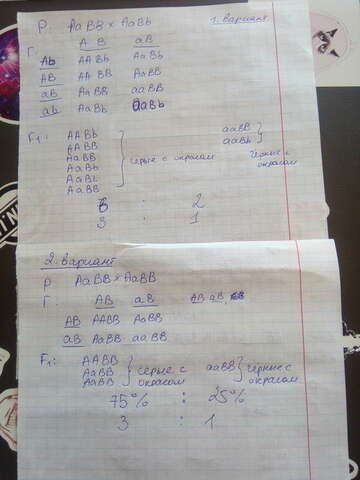 P. AaBB × AaBb 1. вариант.
Г. AB aB
Ab AABb AaBb
AB AABB AaBB
aB AaBB aaBB
ab AaBb aaBb
F₁: AABb aaBB
AABB aaBb
AaBB серые с окрасом чёрные с окрасом
AaBb
AaBb
AaBB
6 : 2
3 : 1
2. вариант
P AaBB × AaBB
Г. AB aB AB aB
AB AABB AaBB
aB AaBB aaBB
F₁: AABB
AaBB серые с окрасом aaBB чёрные с окрасом
AaBB
75% : 25%
3 : 1